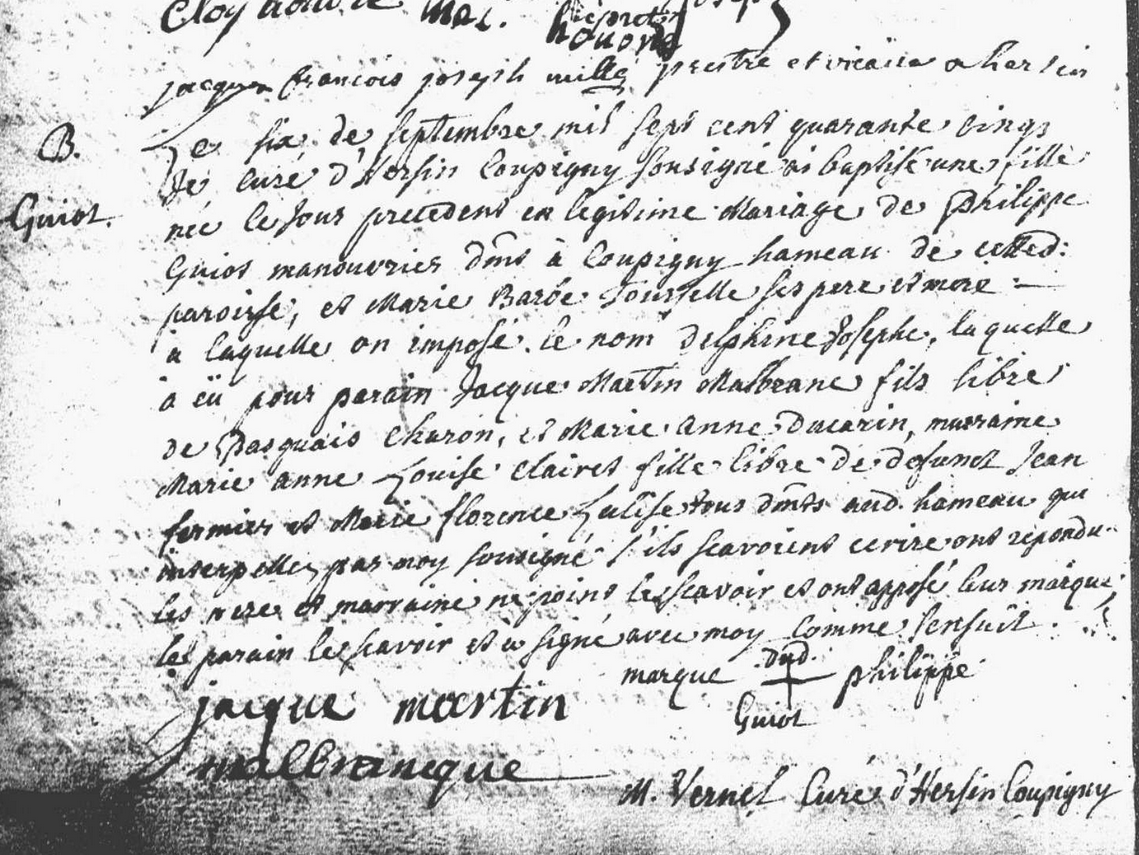 jacque francois joseph mille prestre et vicaire a hersin
B.
Guiot.
Le six de septembre mil sept cent quarante cinq
Je Curé d'Hersin Coupigny soussigné ai baptisé une fille
née le Jour precedent en legitime Mariage de philippe
Guiot manouvrier dmt à Coupigny hameau de cetted:
paroisse, et Marie Barbe Tourselle ses pere et mere
a laquelle on imposé le nom delphine Josephe, laquelle
à eü pour parain Jacque Martin Malbranc fils libre
de Pasquais Charon, et Marie anne Ducarin, maraine
Marie anne Louise Clairet fille libre de defunct Jean
fermier et Marie florence tous dmts aud. hameau qui
interpellez par moy soussigné s'ils scavoient ecrire ont repondu
les pere et marraine ne point le scavoir et ont apposé leur marque,
le parain le scavoir et a signé avec moy comme s'ensuit.
marque dud philippe
Guiot
jacque martin
malbrancque
M. Vernel Curé d'Hersin Coupigny